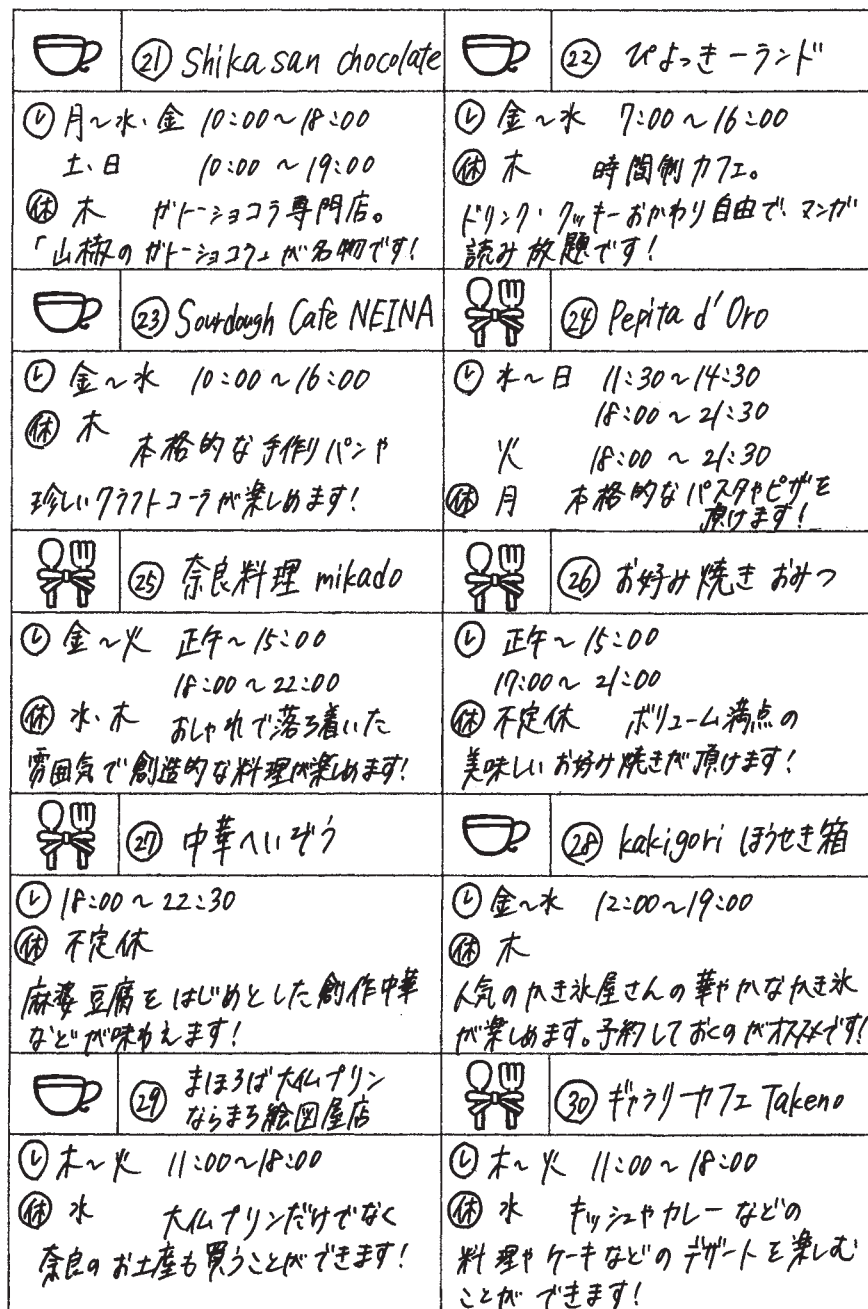 ㉑ Shika san chocolate
月〜水・金 10:00〜18:00
土、日 10:00〜19:00
休 木 ガトーショコラ専門店。
「山椒のガトーショコラ」が名物です!
㉒ ぴよっきーランド
金〜水 7:00〜16:00
休 木 時間制カフェ。
ドリンク・クッキーおかわり自由で、マンガ
読み放題です!
㉓ Sourdough Cafe NEINA
金〜水 10:00〜16:00
休 木
本格的な手作りパンや
珍しいクラフトコーラが楽しめます!
㉔ Pepita d'Oro
水〜日 11:30〜14:30
18:00〜21:30
火 18:00〜21:30
休 月 本格的なパスタやピザを
頂けます!
㉕ 奈良料理 mikado
金〜火 正午〜15:00
18:00〜22:00
休 水、木 おしゃれで落ち着いた
雰囲気で創造的な料理が楽しめます!
㉖ お好み焼き おみつ
正午〜15:00
17:00〜21:00
休 不定休 ボリューム満点の
美味しいお好み焼きが頂けます!
㉗ 中華へいぞう
18:00〜22:30
休 不定休
麻婆豆腐をはじめとした創作中華
などが味わえます!
㉘ kakigori ほうせき箱
金〜水 12:00〜19:00
休 木
人気のかき氷屋さんの華やかなかき氷
が楽しめます。予約しておくのがオススメです!
㉙ まほろば大仏プリン
ならまち絵図屋店
木〜火 11:00〜18:00
休 水 大仏プリンだけでなく
奈良のお土産も買うことができます!
㉚ ギャラリーカフェ Takeno
木〜火 11:00〜18:00
休 水 キッシュやカレーなどの
料理やケーキなどのデザートを楽しむ
ことができます!